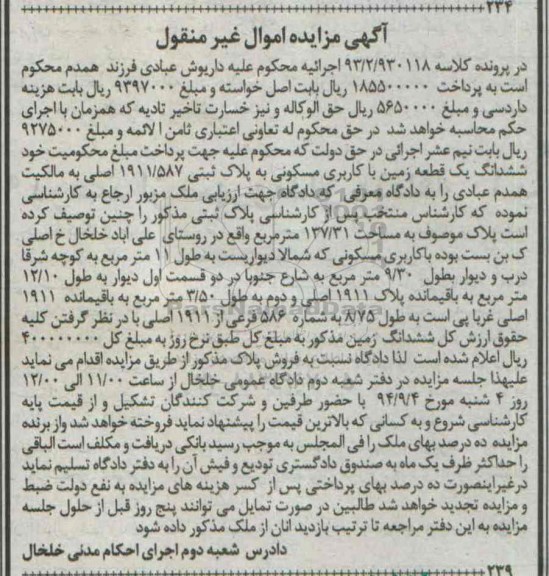 ۲۳۴
آگهی مزایده اموال غیر منقول
در پرونده کلاسه ۹۳/۲/۹۳۰۱۱۸ اجرائیه محکوم علیه داریوش عبادی فرزند همدم محکوم
است به پرداخت ۱۸۵۵۰۰۰۰۰ ریال بابت اصل خواسته و مبلغ ۹۳۹۷۰۰۰ ریال بابت هزینه
داردسی و مبلغ ۵۶۵۰۰۰۰ ریال حق الوکاله و نیز خسارت تاخیر تادیه که همزمان با اجرای
حکم محاسبه خواهد شد در حق محکوم له تعاونی اعتباری ثامن ا لائمه و مبلغ ۹۲۷۵۰۰۰
ریال بابت نیم عشر اجرائی در حق دولت که محکوم علیه جهت پرداخت مبلغ محکومیت خود
ششدانگ یک قطعه زمین با کاربری مسکونی به پلاک ثبتی ۱۹۱۱/۵۸۷ اصلی به مالکیت
همدم عبادی را به دادگاه معرفی که دادگاه جهت ارزیابی ملک مزبور ارجاع به کارشناسی
نموده که کارشناس منتخب پس از کارشناسی پلاک ثبتی مذکور را چنین توصیف کرده
است پلاک موصوف به مساحت ۱۳۷/۳۱ مترمربع واقع در روستای علی اباد خلخال خ اصلی
ک بن بست بوده باکاربری مسکونی که شمالا دیواریست به طول ۱۱ متر مربع به کوچه شرقا
درب و دیوار بطول ۹/۳۰ متر مربع به شارع جنوبا در دو قسمت اول دیوار به طول ۱۲/۱۰
متر مربع به باقیمانده پلاک ۱۹۱۱ اصلی و دوم به طول ۳/۵۰ متر مربع به باقیمانده ۱۹۱۱
اصلی غربا پی است به طول ۸/۷۵ به شماره ۵۸۶ فرعی از ۱۹۱۱ اصلی با در نظر گرفتن کلیه
حقوق ارزش کل ششدانگ زمین مذکور به مبلغ کل طبق نرخ روز به مبلغ کل ۴۰۰۰۰۰۰۰۰
ریال اعلام شده است لذا دادگاه نسبت به فروش پلاک مذکور از طریق مزایده اقدام می نماید
علیهذا جلسه مزایده در دفتر شعبه دوم دادگاه عمومی خلخال از ساعت ۱۱/۰۰ الی ۱۲/۰۰
روز ۴ شنبه مورخ ۹۴/۹/۴ با حضور طرفین و شرکت کنندگان تشکیل و از قیمت پایه
کارشناسی شروع و به کسانی که بالاترین قیمت را پیشنهاد نماید فروخته خواهد شد وازبرنده
مزایده ده درصد بهای ملک را فی المجلس به موجب رسید بانکی دریافت و مکلف است الباقی
را حداکثر ظرف یک ماه به صندوق دادگستری تودیع و فیش آن را به دفتر دادگاه تسلیم نماید
درغیراینصورت ده درصد بهای پرداختی پس از کسر هزینه های مزایده به نفع دولت ضبط
و مزایده تجدید خواهد شد طالبین در صورت تمایل می توانند پنج روز قبل از حلول جلسه
مزایده به این دفتر مراجعه تا ترتیب بازدید انان از ملک مذکور داده شود
دادرس شعبه دوم اجرای احکام مدنی خلخال
۲۳۹